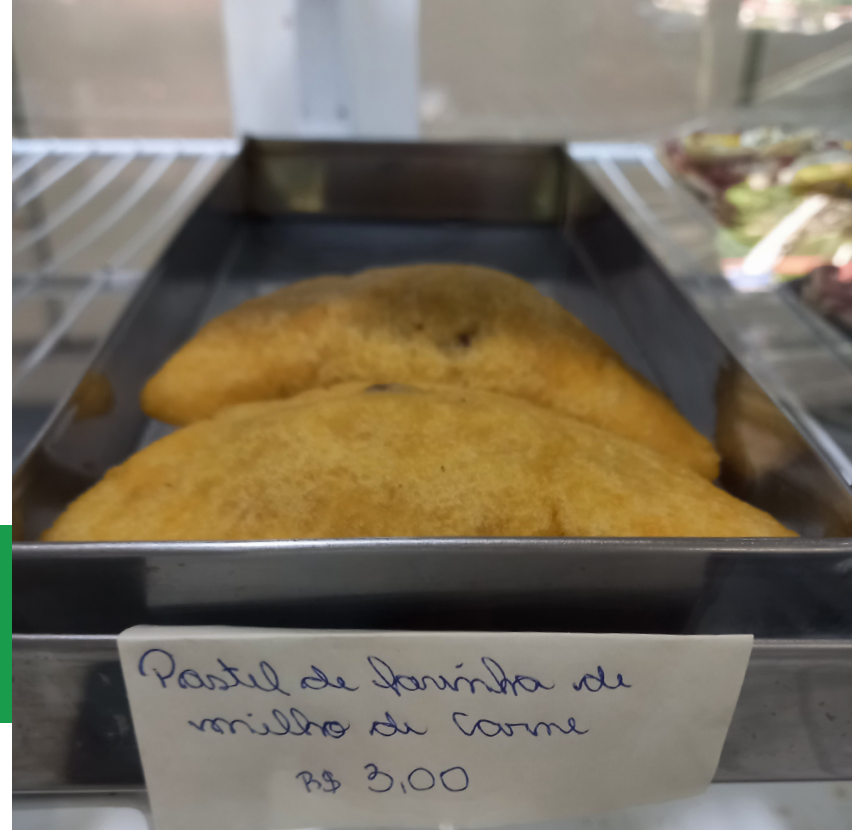 Pastel de farinha de
milho de carne
R$ 3,00